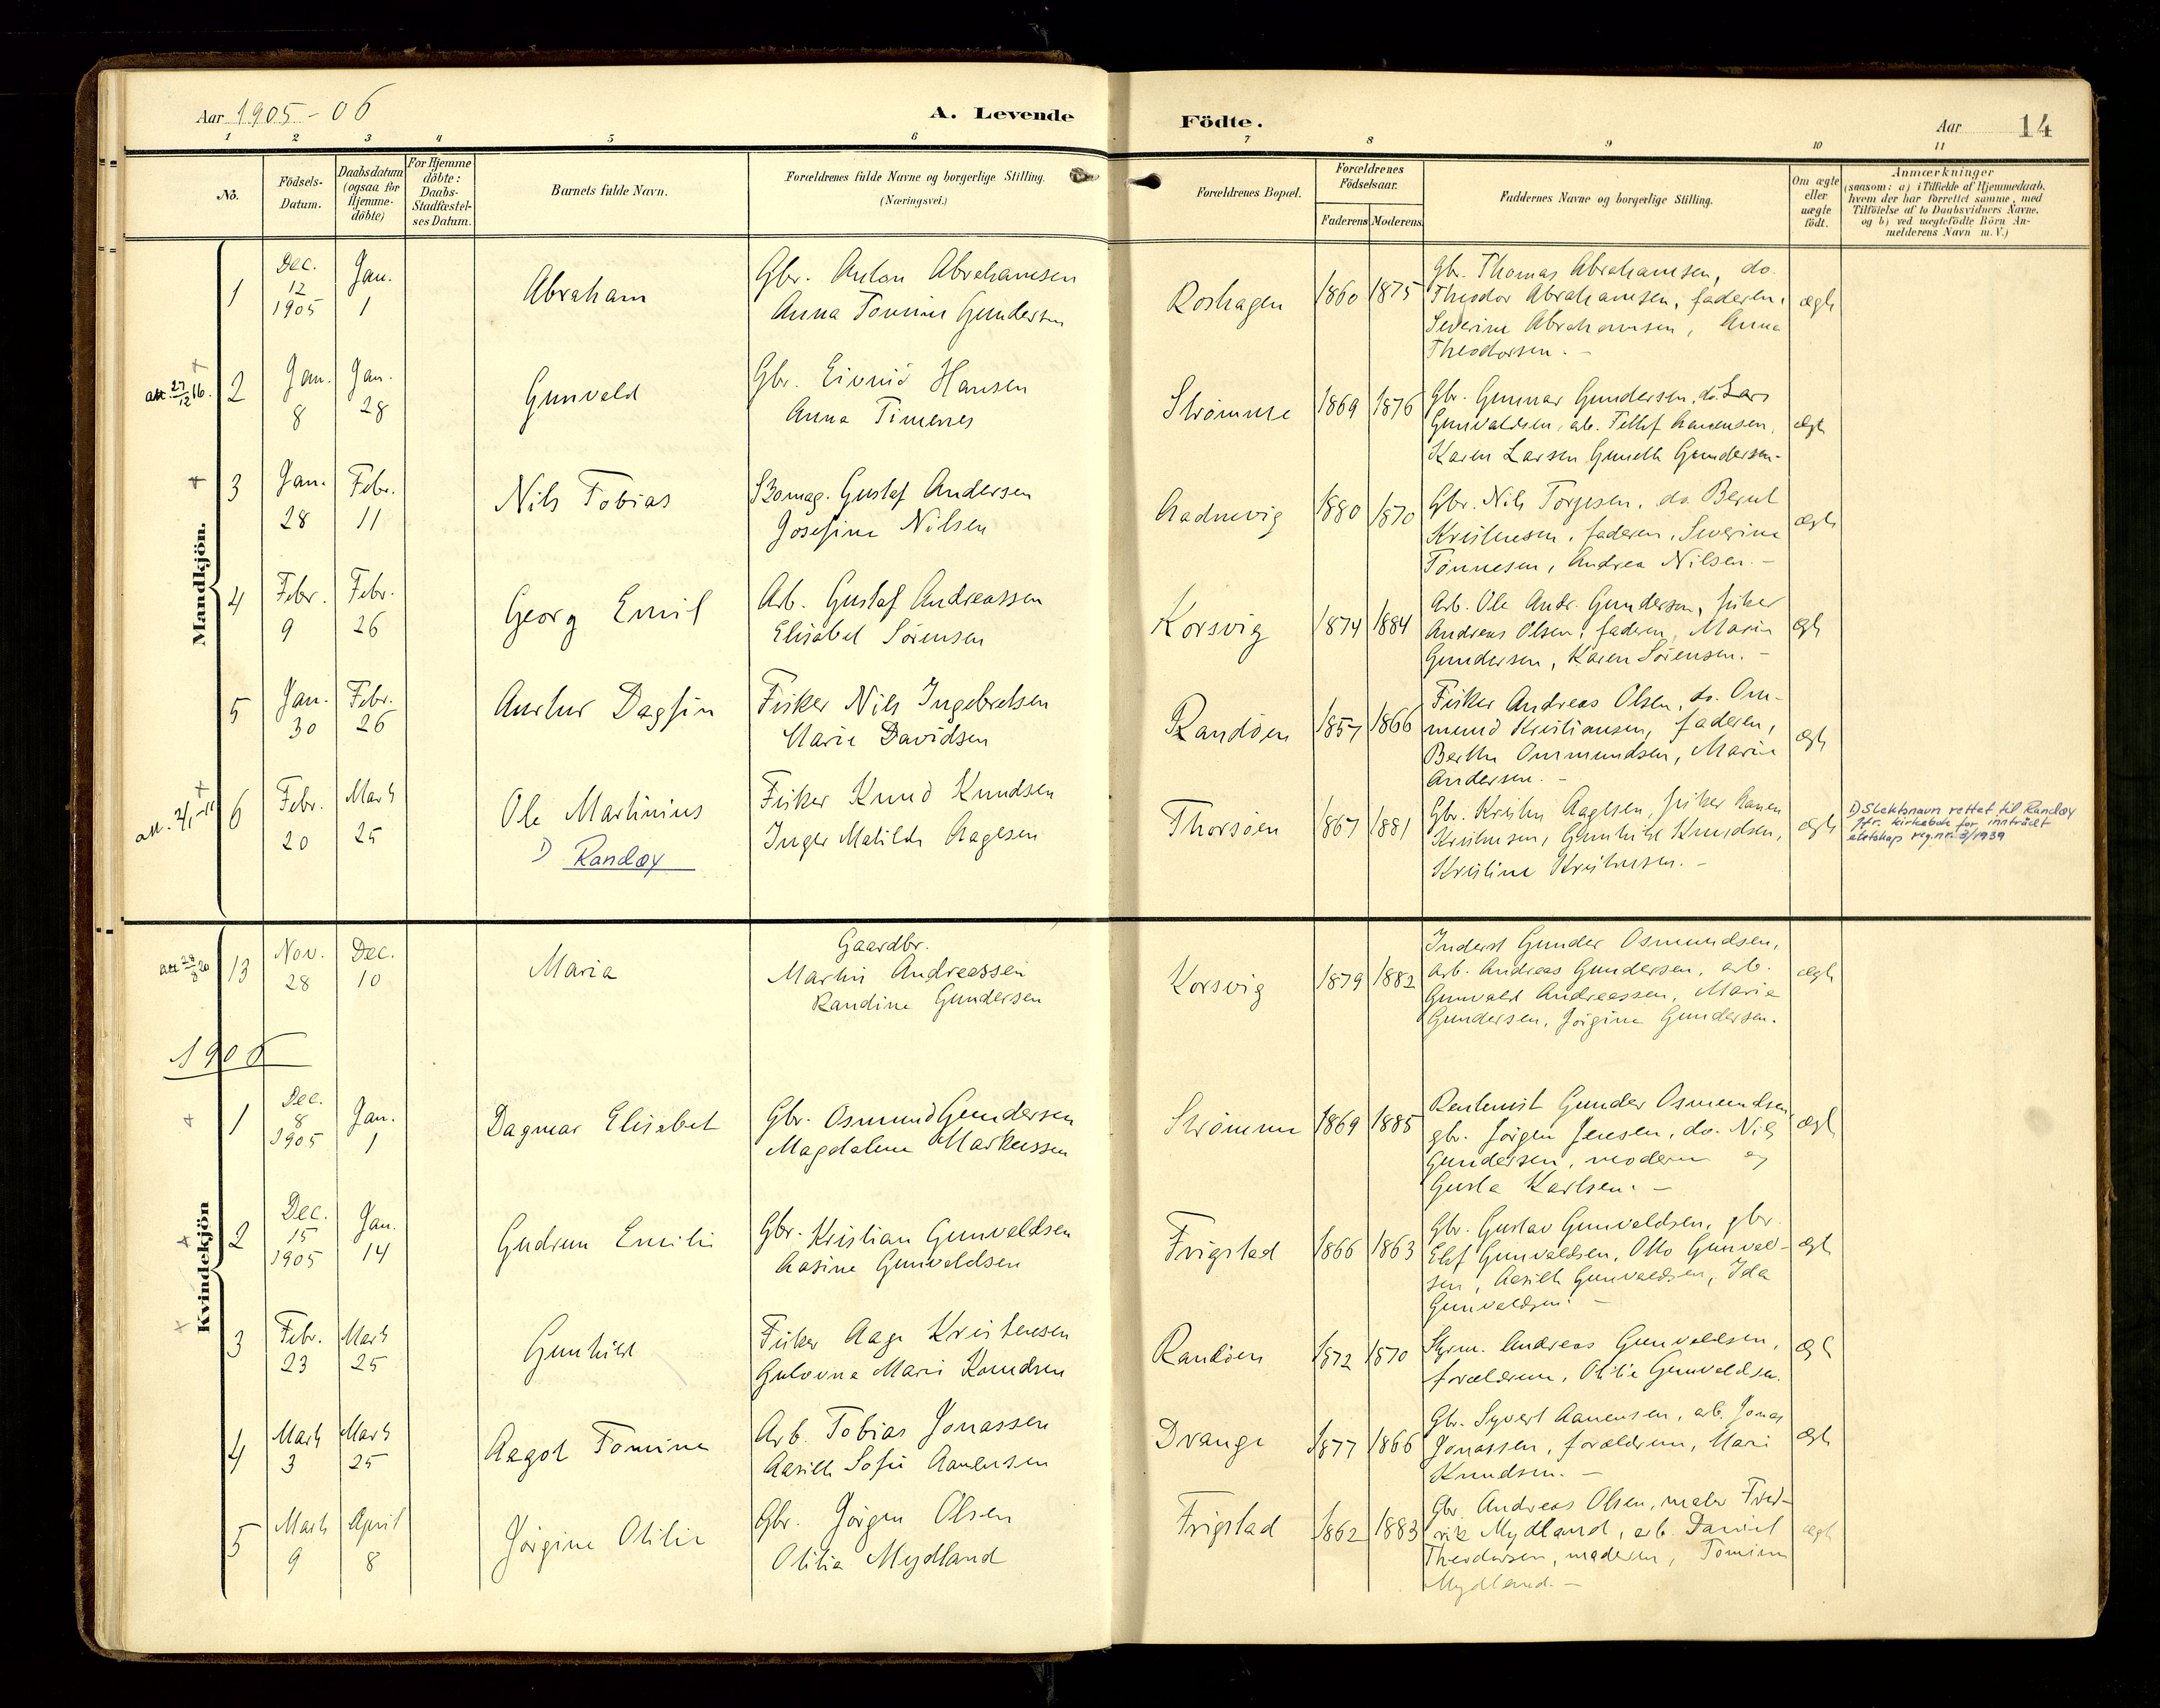 Aar 1905-06
A. Levende
Födte.
Aar 14
1 2 3 4 5 6 7 8 9 10 11
No.
Födsels-Datum.
Daabsdatum (ogsaa for Hjemme-döbte)
For Hjemme döbte: Daabs-Stadfæstel-ses Datum.
Barnets fulde Navn.
Forældrenes fulde Navne og borgerlige Stilling. (Næringsvei.)
Forældrenes Bopæl.
Forældrenes Födselsaar.
Faderens Moderens
Faddernes Navne og borgerlige Stilling.
Om ægte eller uægte födt.
Anmærkninger
(saasom: a) i Tilfælde af Hjemmedaab,
hvem der har forrettet samme, med
Tilföielse af to Daabsvidners Navne.
og b) ved uægtefödte Börn An-
melderens Navn m. V.)
Mandkjön.
1 Dec. 12 1905 Jan. 1
Abraham
Gbr. Anton Abrahamsen
Anna Tomine Gundersen
Roshagen 1860 1875
Gbr. Thomas Abrahamsen, do.
Theodor Abrahamsen, faderen,
Severine Abrahamsen, Anna
Theodorsen. -
ægte
att. 27/12 16. 2 Jan. 8 Jan. 28
Gunvald
Gbr. Eivind Hansen
Anna Timenes
Strömme 1869 1876
Gbr. Gunnar Gundersen, do. Lars
Gunvaldsen, arb. Tellef Aanensen,
Karen Larsen Gunelle Gundersen-
ægte
3 Jan. 28 Febr. 11
Nils Tobias
Gustaf Andersen
Josefine Nilsen
Aadnevig 1880 1870
Gbr. Nils Torjesen, do. Berut
Kristensen, faderen, Severine
Tönnesen, Andrea Nilsen. -
ægte
4 Febr. 9 Febr. 26
Georg Emil
Arb. Gustaf Andreassen
Elisabet Sörensen
Korsvig 1874 1884
Arb. Ole Andr. Gundersen, fisker
Andreas Olsen, faderen, Marie
Gundersen, Karen Sörensen. -
ægte
5 Jan. 30 Febr. 26
Aurtur Dagfin
Fisker Nils Ingebretsen
Marie Davidsen
Randöen 1857 1866
Fisker Andreas Olsen, do. Om-
mund Kristiansen, faderen,
Berthe Ommundsen, Marie
Andersen. -
ægte
6 Febr. 20 Marts 25
Ole Martinius
1) Randøy
Fisker Knud Knudsen
Inger Matilde Aagesen
Thorsöen 1867 1881
Gbr. Kristen Aagesen, fisker Aanen
Kristensen, Gunhild Knudsen,
Kristine Kristensen. -
ægte
1) Slektsnavn rettet til Randøy
Jfr. kirkebok for inntrådt
ektskap reg.nr. 3/1939
13 Nov. 28 Dec. 10
Maria
Gaardbr.
Martin Andreassen
Randine Gundersen
Korsvig 1879 1882
Inderst Gunder Osmundsen,
arb. Andreas Gundersen, arb.
Gunvald Andreassen, Marie
Gundersen, Jörgine Gundersen.
ægte
1906
Kvindekjön
1 Dec. 8 1905 Jan. 1
Dagmar Elisabet
Gbr. Osmund Gundersen
Magdalene Markussen
Strömme 1869 1885
Rentenist Gunder Osmundsen,
gbr. Jörgen Jensen, do. Nils
Gundersen, moderen og
Gusta Karlsen. -
ægte
2 Dec. 15 1905 Jan. 14
Gudrun Emilie
Gbr. Kristian Gunvaldsen
Aasine Gunvaldsen
Frigstad 1866 1863
Gbr. Gustav Gunvaldsen, gbr.
Elef Gunvaldsen, Otto Gunvald-
sen, Aasille Gunvaldsen, Ida
Gunvaldsen. -
ægte
3 Febr. 23 Marts 25
Gunhild
Fisker Aage Kristensen
Gulovna Marie Knudsen
Randöen 1872 1870
Styrm. Andreas Gunvaldsen,
forældrene, Otilie Gunvaldsen.
ægte
4 Marts 3 Marts 25
Aagot Tomine
Arb. Tobias Jonassen
Aasille Sofie Aanensen
Drange 1877 1866
Gbr. Syvert Aanensen, arb. Jonas
Jonassen, forældrene, Marie
Knudsen. -
ægte
5 Marts 9 April 8
Jörgine Otilie
Gbr. Jörgen Olsen
Otilia Mydland
Frigstad 1862 1883
Gbr. Andreas Olsen, maler Fred-
rik Mydland, arb. Daniel
Theodorsen, moderen, Tomine
Mydland. -
ægte